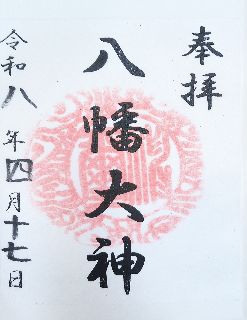 奉拝
八幡大神
令和八年四月十七日